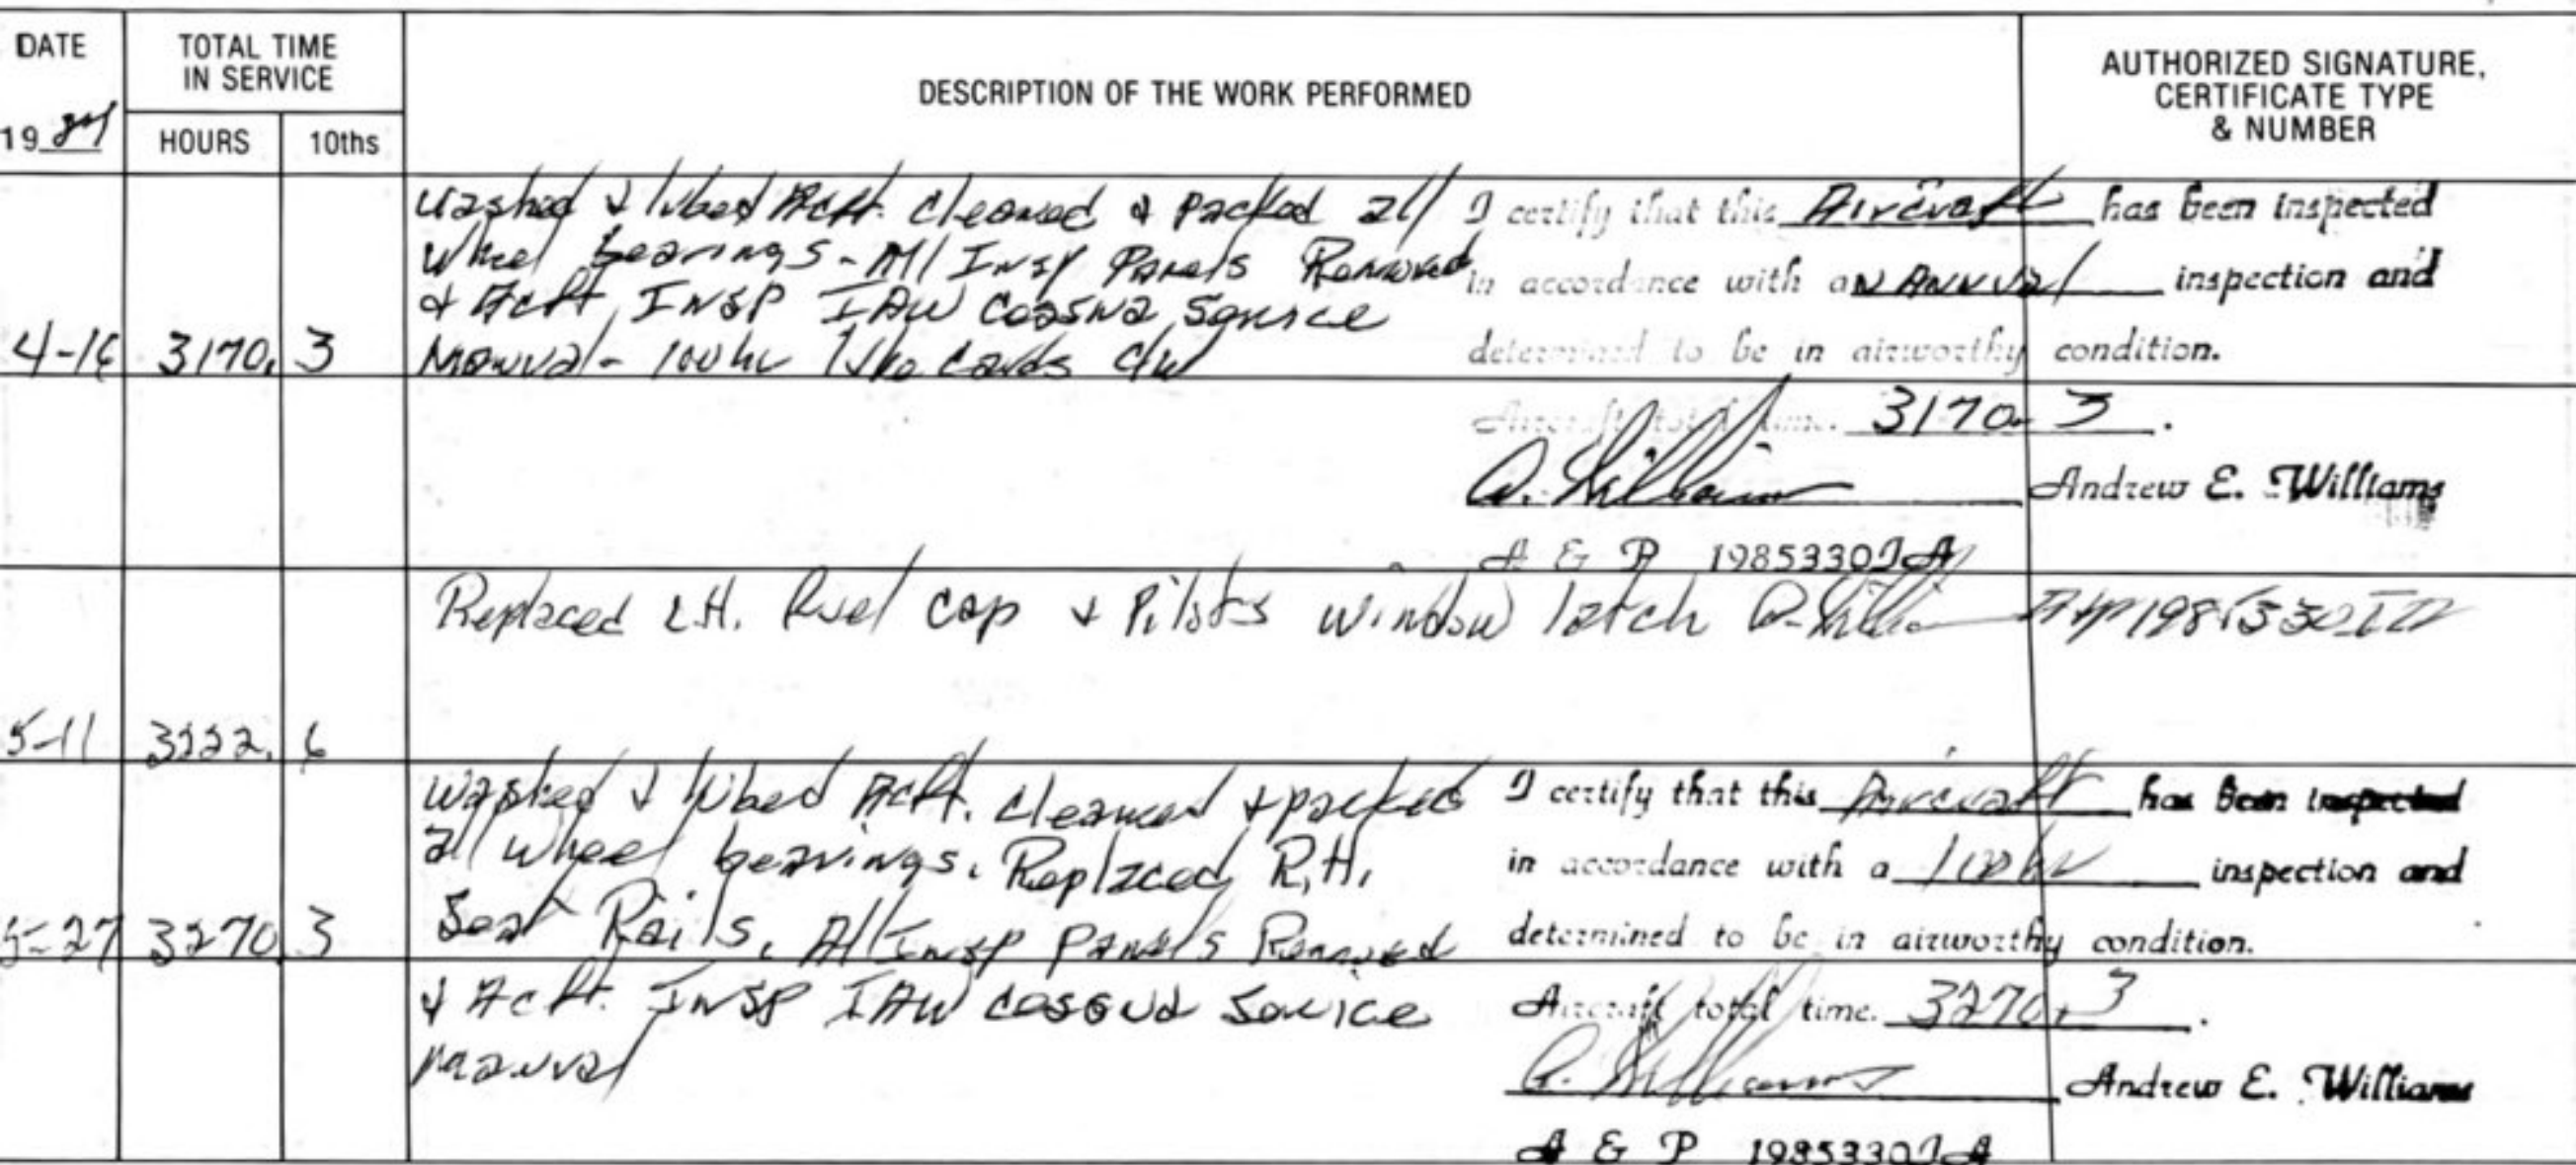 DATE
TOTAL TIME
IN SERVICE
DESCRIPTION OF THE WORK PERFORMED
AUTHORIZED SIGNATURE,
CERTIFICATE TYPE
& NUMBER
19
HOURS
10ths
Washed & lubed Acft. Cleaned & packed all
wheel bearings - All Insp Panels Removed
& Acft INSP IAW Cessna Service
4-16 3170. 3 Manual - 100 hr cards c/w
I certify that this Aircraft has been inspected
in accordance with aN ANNUal inspection and
determined to be in airworthy condition.
Aircraft total time. 3170. 3.
A. Williams Andrew E. Williams
A & P 1985330IA
Replaced L.H. Fuel cap & Pilots window latch A. Williams A&P 1985330IA
5-11 3222. 6
Washed & lubed Acft. Cleaned & packed
all wheel bearings. Replaced R.H.
5-27 3270 3 Seat Rails. All Insp Panels Removed
& Acft. INSP IAW Cessna Service
Manual
I certify that this Aircraft has been inspected
in accordance with a 100 hr inspection and
determined to be in airworthy condition.
Aircraft total time. 3270. 3.
A. Williams Andrew E. Williams
A & P 1985330IA